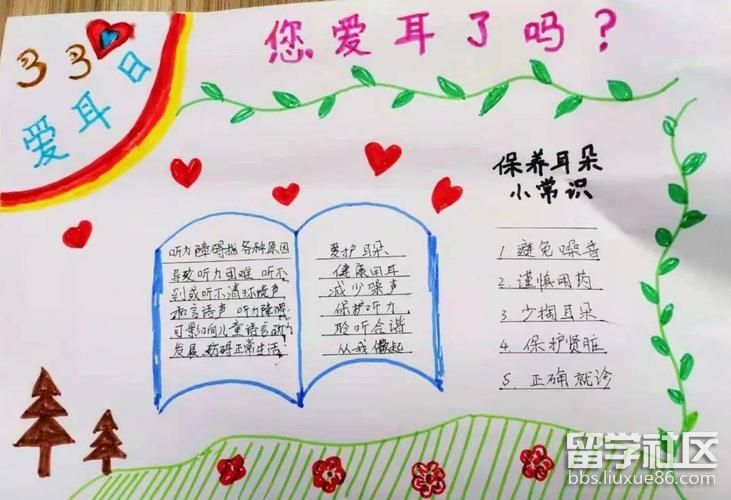 33
爱耳日
您爱耳了吗？
听力障碍指各种原因
导致听力困难 听不
到或听不清环境声
和言语声 听力障碍
可影响儿童语言能力
发展、妨碍正常生活
爱护耳朵
健康回耳
减少噪声
保护听力
聆听合谐
从我做起
保养耳朵
小常识
1. 避免噪音
2. 谨慎用药
3. 少掏耳朵
4. 保护肾脏
5. 正确就诊
留学社区
bbs.liuxue86.com